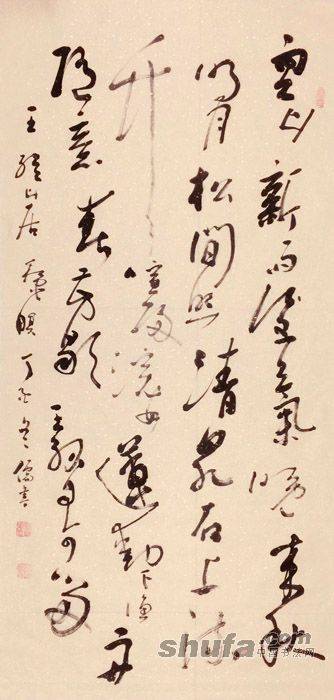 空山新雨後天氣晚來秋
明月松間照清泉石上流
竹喧歸浣女蓮動下漁舟
隨意春芳歇王孫自可留
王維山居秋暝丁亥冬
shufa.com
中国书法网